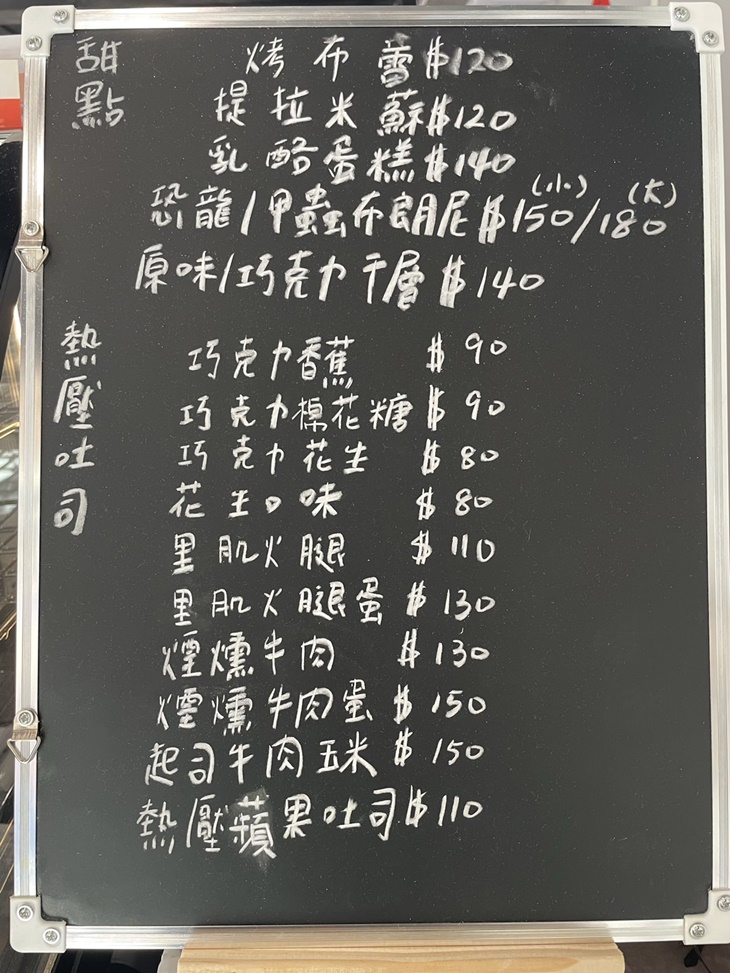 甜點
烤布蕾$120
提拉米蘇$120
乳酪蛋糕$140
恐龍/甲蟲布朗尼$150(小)/180(大)
原味/巧克力千層$140
熱壓吐司
巧克力香蕉 $90
巧克力棉花糖$90
巧克力花生 $80
花生口味 $80
里肌火腿 $110
里肌火腿蛋 $130
煙燻牛肉 $130
煙燻牛肉蛋 $150
起司牛肉玉米 $150
熱壓蘋果吐司$110